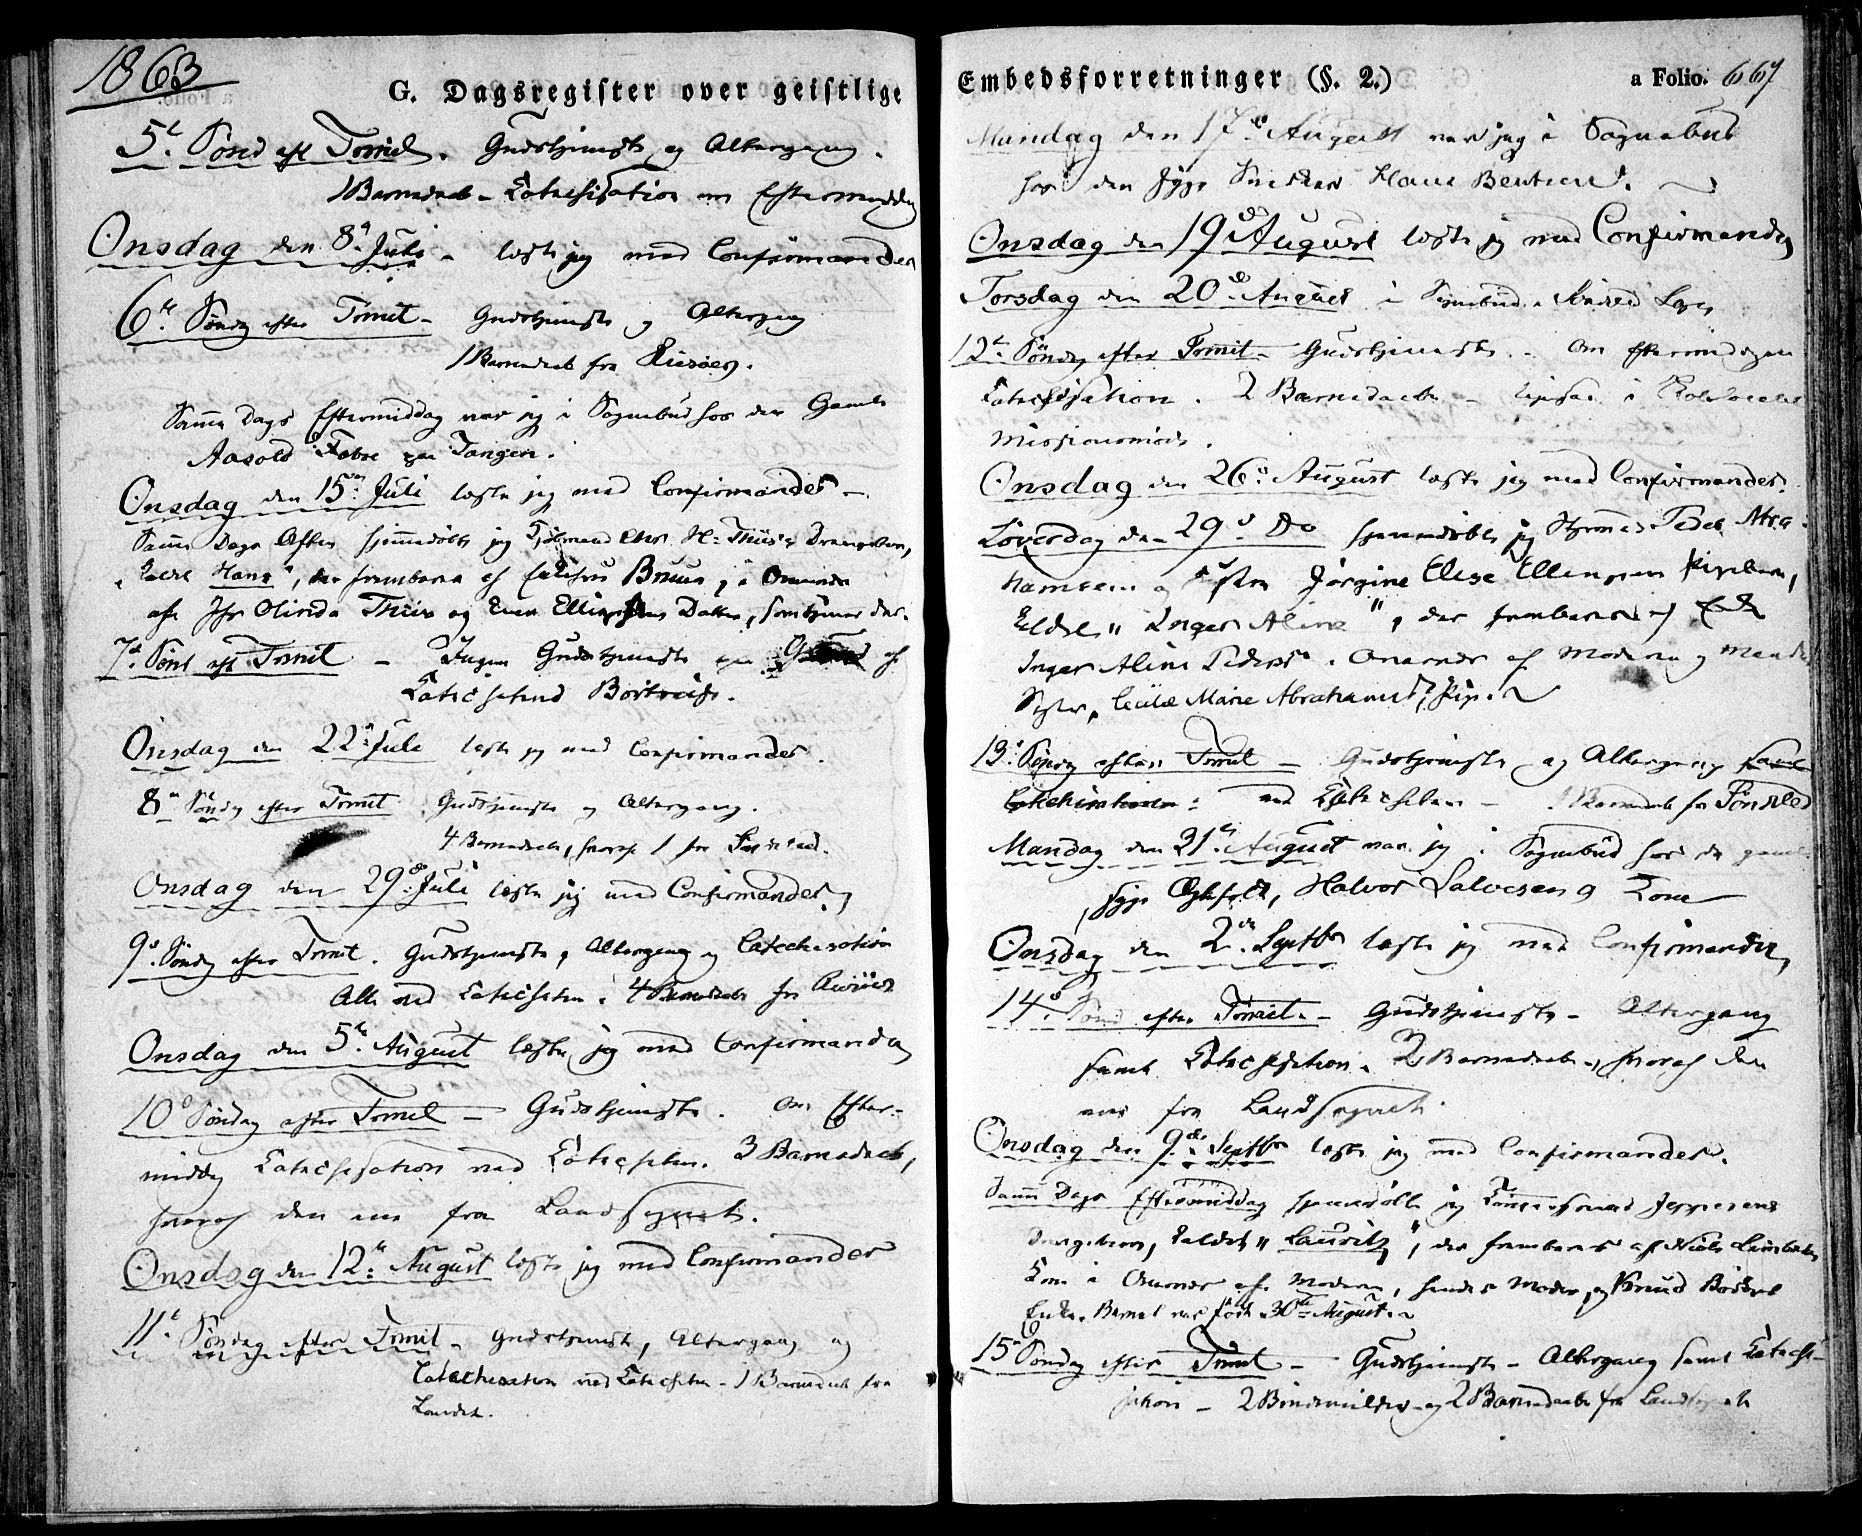 1863
G. Dagsregister over geistlige
5te Sønd eft Trinit. Gudstjeneste og Altergang.
1 Barnedaab - Catechisation om Eftermiddag
Onsdag den 8de Juli - læste jeg med Confirmander
6te Søndag efter Trinit - Gudstjeneste og Altergang
1 Barnedaab fra Riisöer.
Samme Dags Eftermiddag var jeg i Sognebud hos den Gamle
Aasold paa Tangen.
Onsdag den 15de Juli læste jeg med Confirmander -
Samme Dags Aften hjemmedøbte jeg H. Thiis's Drengebarn,
kaldt Hans", der frembares af Bruun, i Overvær
af Jfr Olinda Thiis og Even Ellingsens Datter, som tjener der.
7de Sønd eft Trinit - Ingen Gudstjeneste paa Grund af
Catechetens Bortreise.
Onsdag den 22de Juli læste jeg med Confirmander.
8de Søndag efter Trinit. Gudstjeneste og Altergang.
4 Barnedaab, hvoraf 1 fra
Onsdag den 29de Juli læste jeg med Confirmander
9de Søndag efter Trinit. Gudstjeneste, Altergang og Catechesation
Alt ved Catecheten. 4 Barnedaab fra
Onsdag den 5te August læste jeg med Confirmander
10de Søndag efter Trinit - Gudstjeneste. Om Efter-
middag Catechesation ved Catecheten. 3 Barnedaab,
hvoraf den ene fra Landsognet.
Onsdag den 12te August læste jeg med Confirmander
11te Søndag efter Trinit - Gudstjeneste, Altergang og
Catechesation ved Catecheten - 1 Barnedaab fra
Landet.
Embedsforretninger (§. 2.)
a Folio. 667
Mandag den 17de August var jeg i Sognebud
hos den syge Snedker Hans Bentsen.
Onsdag den 19de August læste jeg med Confirmander
Torsdag den 20de August i Sognebud
12te Søndag efter Trinit - Gudstjeneste. - Om Eftermidagen
Catechisation. 2 Barnedaab - i
Missionsmöde.
Onsdag den 26de August læste jeg med Confirmander.
Löverdag den 29de Do hjemmedøbte jeg Peder Abra-
hamsen og Hustru Jörgine Elise Ellingsen Pigebarn,
kaldt "Inger Aline", der frembares af
Inger Aline Overvær af Moderen og Mandens
Søster, Cecilie Marie Abrahams, Pige.
13de Søndag efter Trinit - Gudstjeneste og Altergang samt
Catechisation: ved Catecheten - 1 Barnedaab fra
Mandag den 31te August var jeg i Sognebud hos de gamle
syge Halvor Salvesen og Kone
Onsdag den 2den Septbr læste jeg med Confirmander
14de Sønd efter Trinit. - Gudstjeneste - Altergang
samt Catechesation. 2 Barnedaab, hvoraf den
ene fra Landsognet.
Onsdag den 9de Septbr læste jeg med Confirmander.
Samme Dags Eftermiddag hjemmedøbte jeg Jeppesens
Drengebarn, kaldet "Lauritz", der frembares af Niels
Kone i Overvær af Moderen, hendes Moder, og Knud
Enke. Barnet var født 30te August.
15de Søndag efter Trinit - Gudstjeneste - Altergang samt Cateche-
sation - 2 - og 2 Barnedaab fra Landsognet